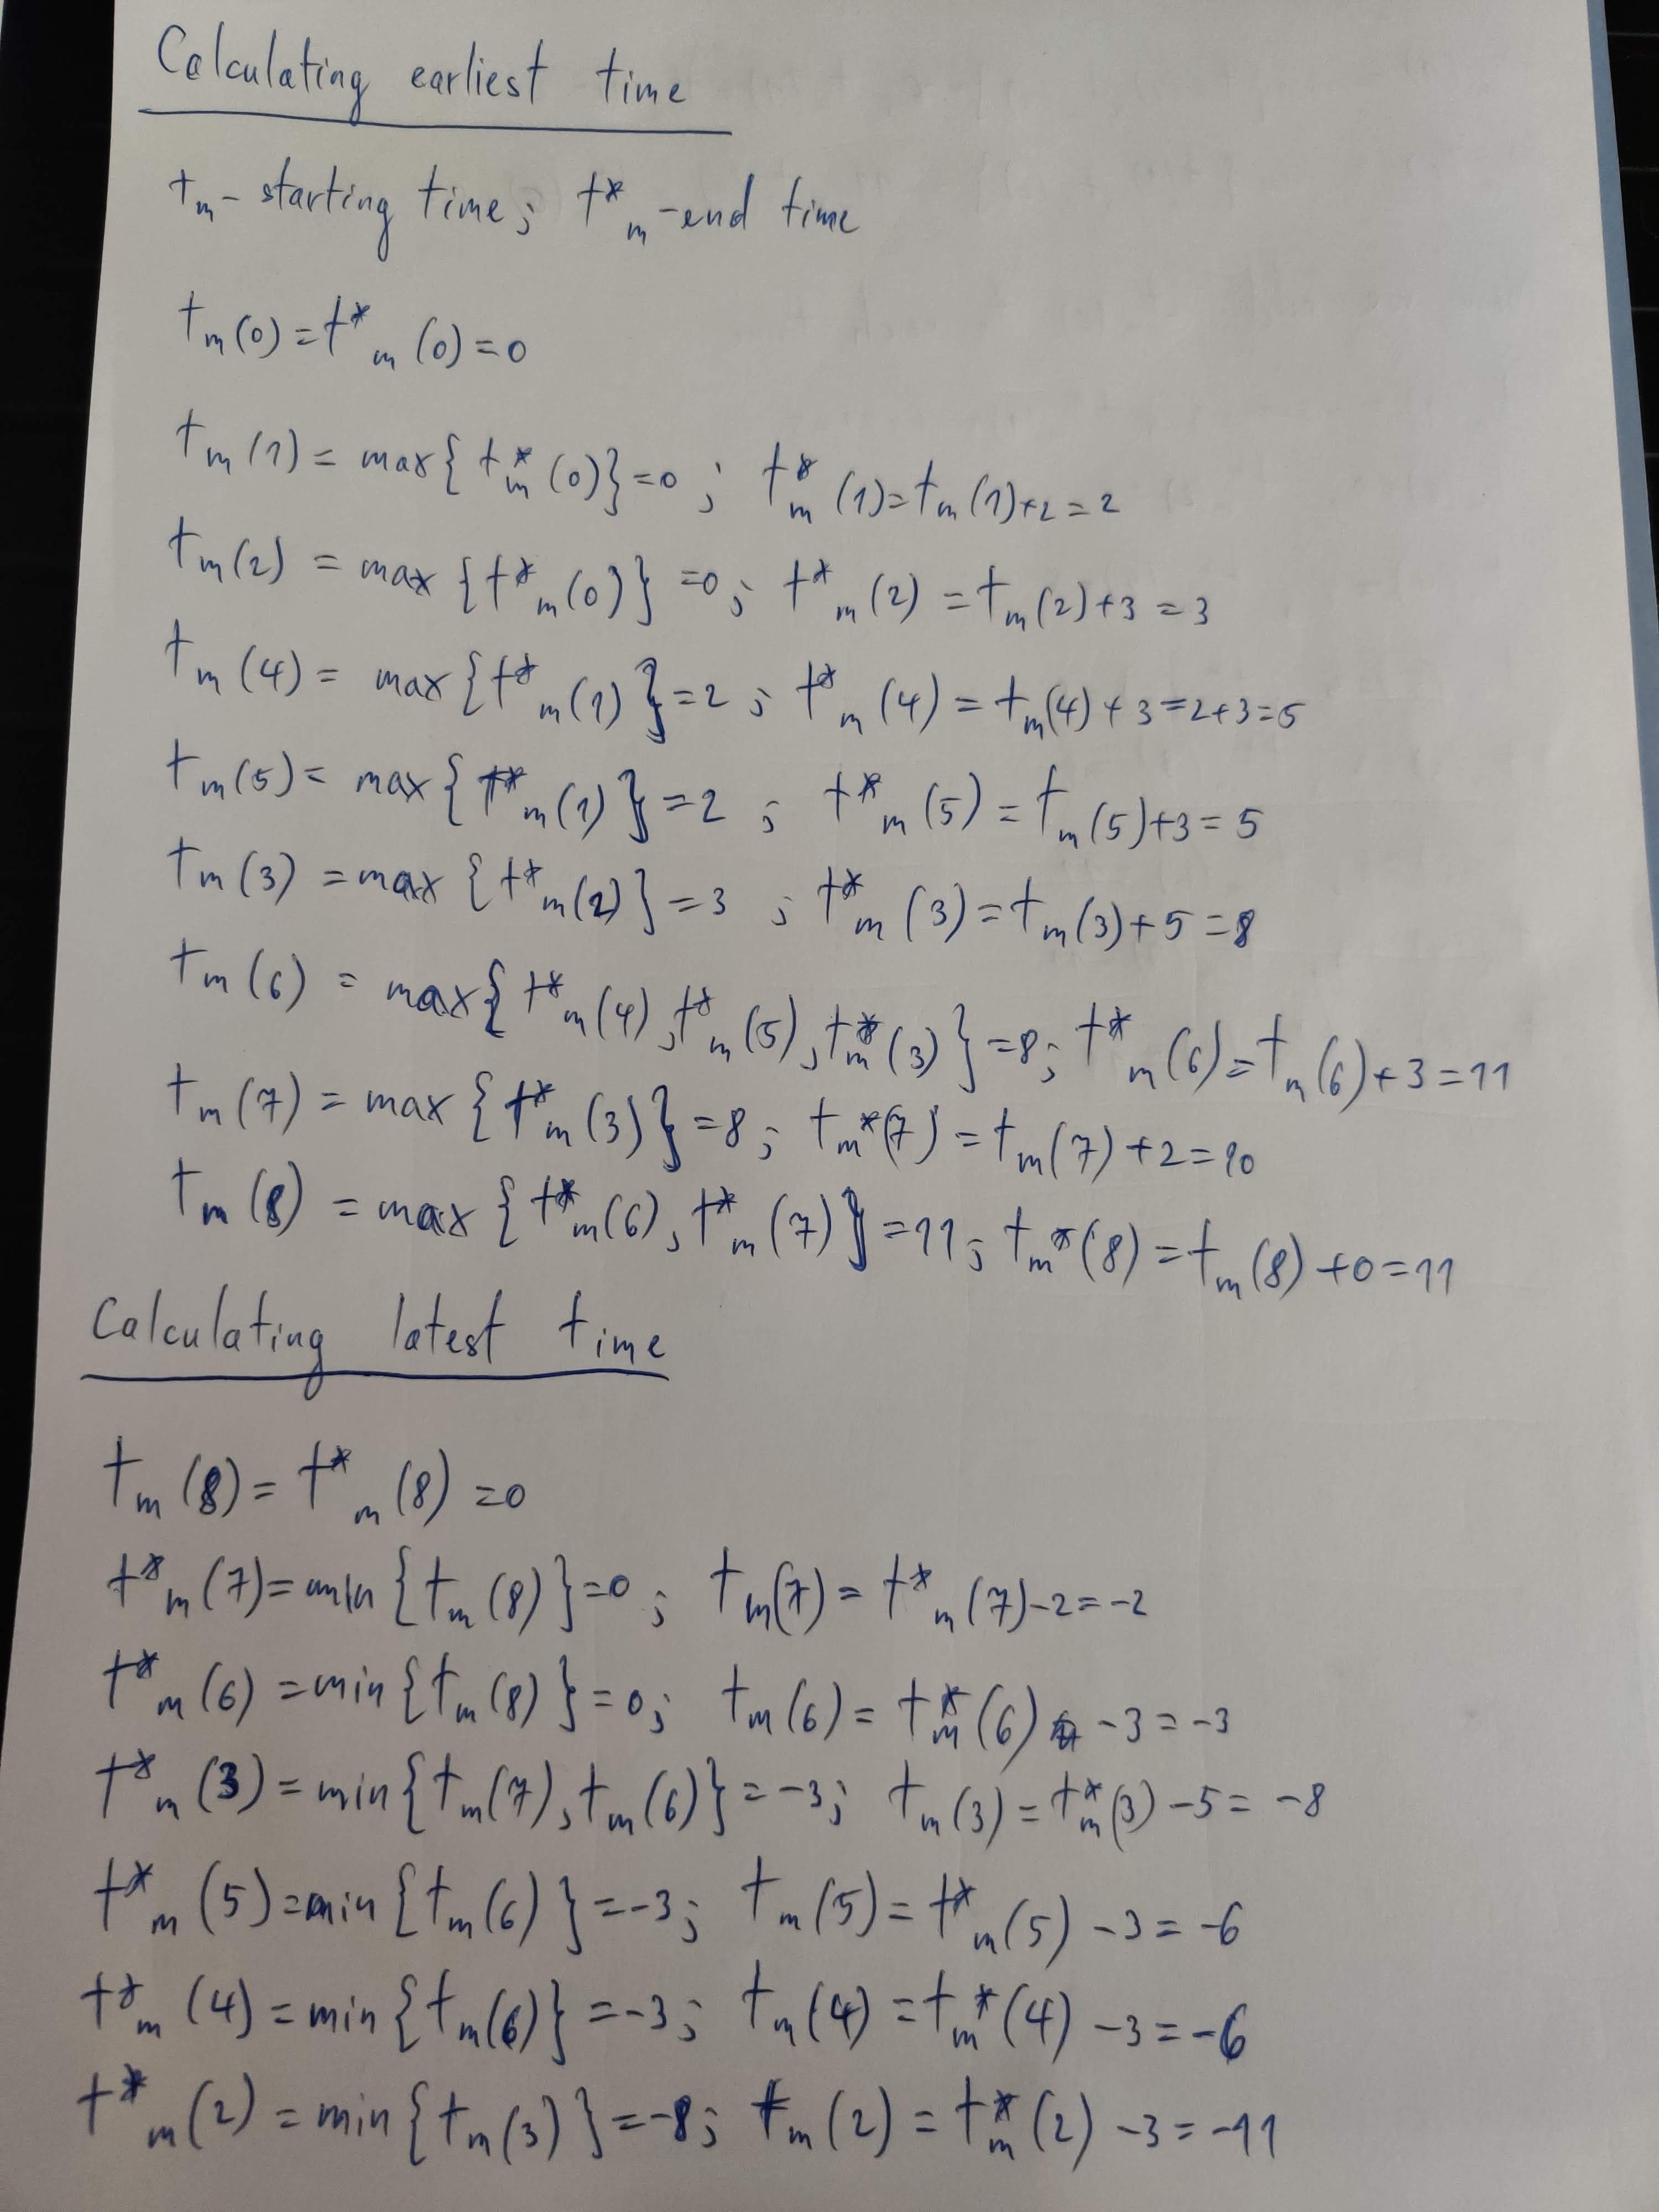 Calculating earliest time
tm - starting time; t*m - end time
tm(0) = t*m(0) = 0
tm(1) = max{t*m(0)} = 0; t*m(1) = tm(1) + 2 = 2
tm(2) = max{t*m(0)} = 0; t*m(2) = tm(2) + 3 = 3
tm(4) = max{t*m(1)} = 2; t*m(4) = tm(4) + 3 = 2 + 3 = 5
tm(5) = max{t*m(1)} = 2; t*m(5) = tm(5) + 3 = 5
tm(3) = max{t*m(2)} = 3; t*m(3) = tm(3) + 5 = 8
tm(6) = max{t*m(4), t*m(5), t*m(3)} = 8; t*m(6) = tm(6) + 3 = 11
tm(7) = max{t*m(3)} = 8; tm*(7) = tm(7) + 2 = 10
tm(8) = max{t*m(6), t*m(7)} = 11; tm*(8) = tm(8) + 0 = 11
Calculating latest time
tm(8) = t*m(8) = 0
t*m(7) = min{tm(8)} = 0; tm(7) = t*m(7) - 2 = -2
t*m(6) = min{tm(8)} = 0; tm(6) = t*m(6) - 3 = -3
t*m(3) = min{tm(7), tm(6)} = -3; tm(3) = t*m(3) - 5 = -8
t*m(5) = min{tm(6)} = -3; tm(5) = t*m(5) - 3 = -6
t*m(4) = min{tm(6)} = -3; tm(4) = tm*(4) - 3 = -6
t*m(2) = min{tm(3)} = -8; tm(2) = t*m(2) - 3 = -11